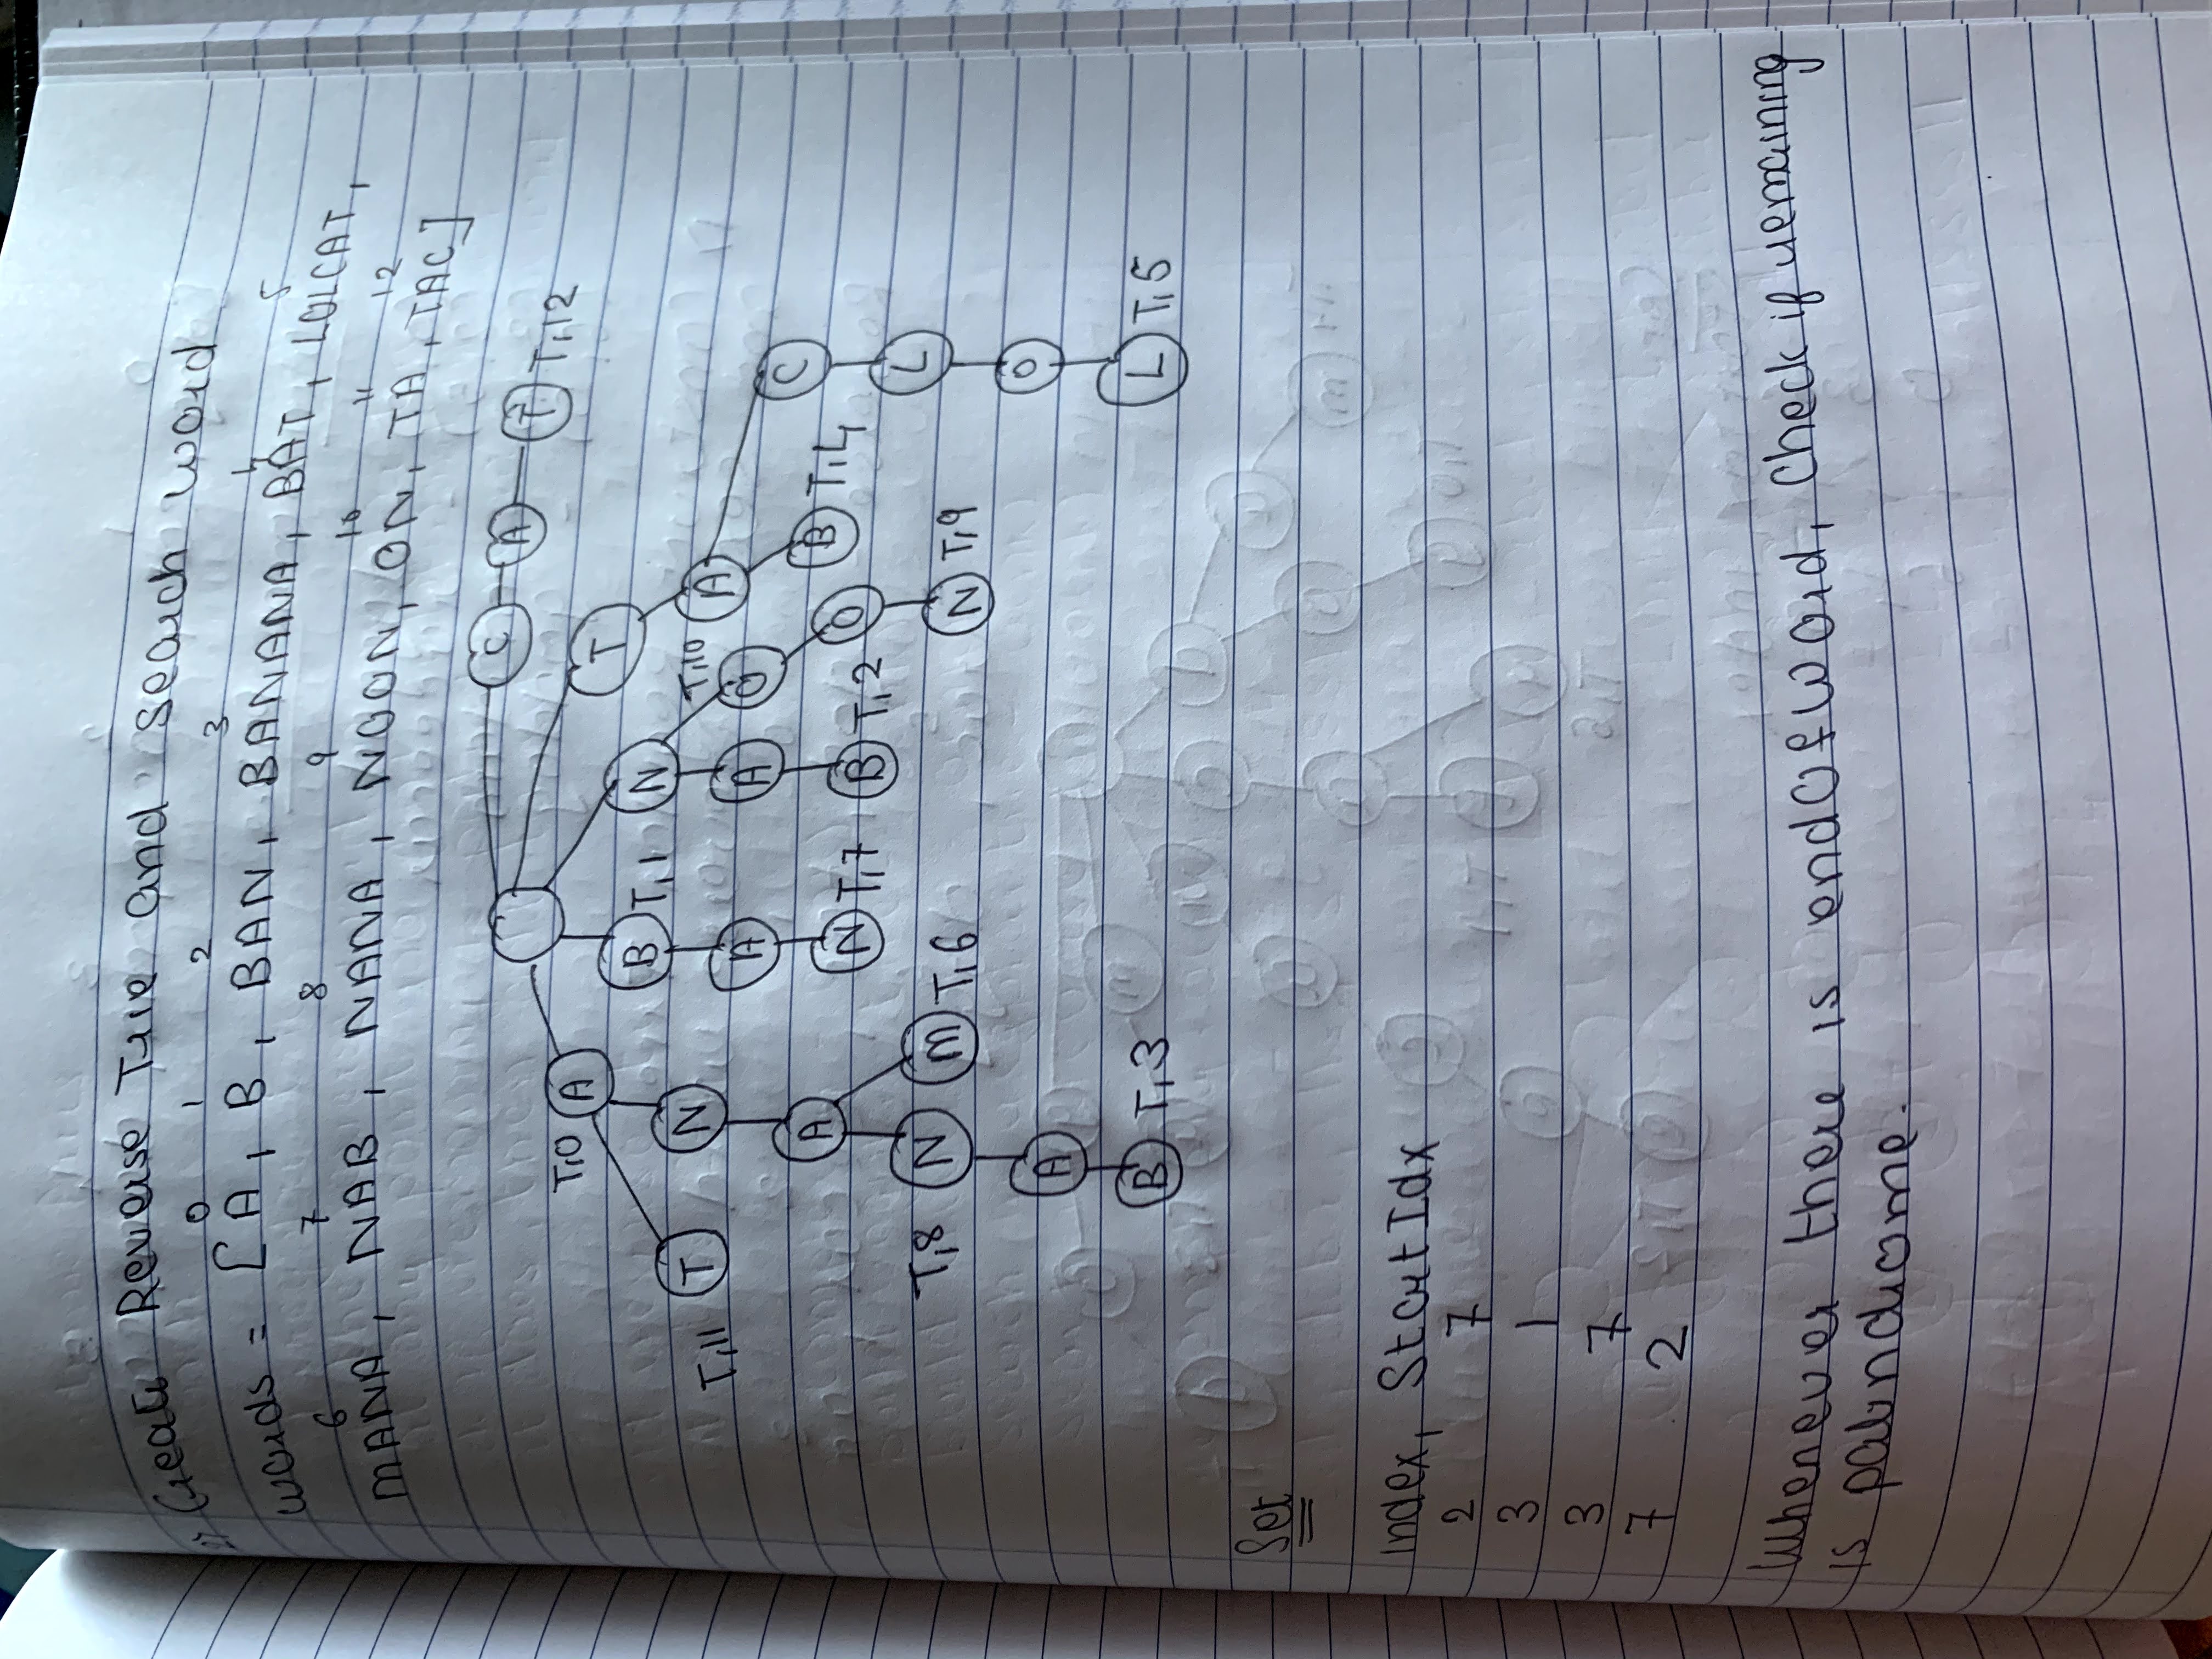 2) Create Reverse Trie and search word
0 1 2 3 4 5
words = [A, B, BAN, BANANA, BAT, LOLCAT,
6 7 8 9 10 11 12
MANA, NAB, NANA, NOON, ON, TA, TAC]
C A T T,12
T,0 A T
B T,1 N
T,11 T N T,10 A
A A O C
A N T,7 B T,2 O B T,4
T,8 N M T,6 N T,9 L
A O
B T,3 L T,5
Set
Index, StartIdx
2 7
3 1
3 7
7 2
Whenever there is endOfWord, Check if remaining
is palindrome.